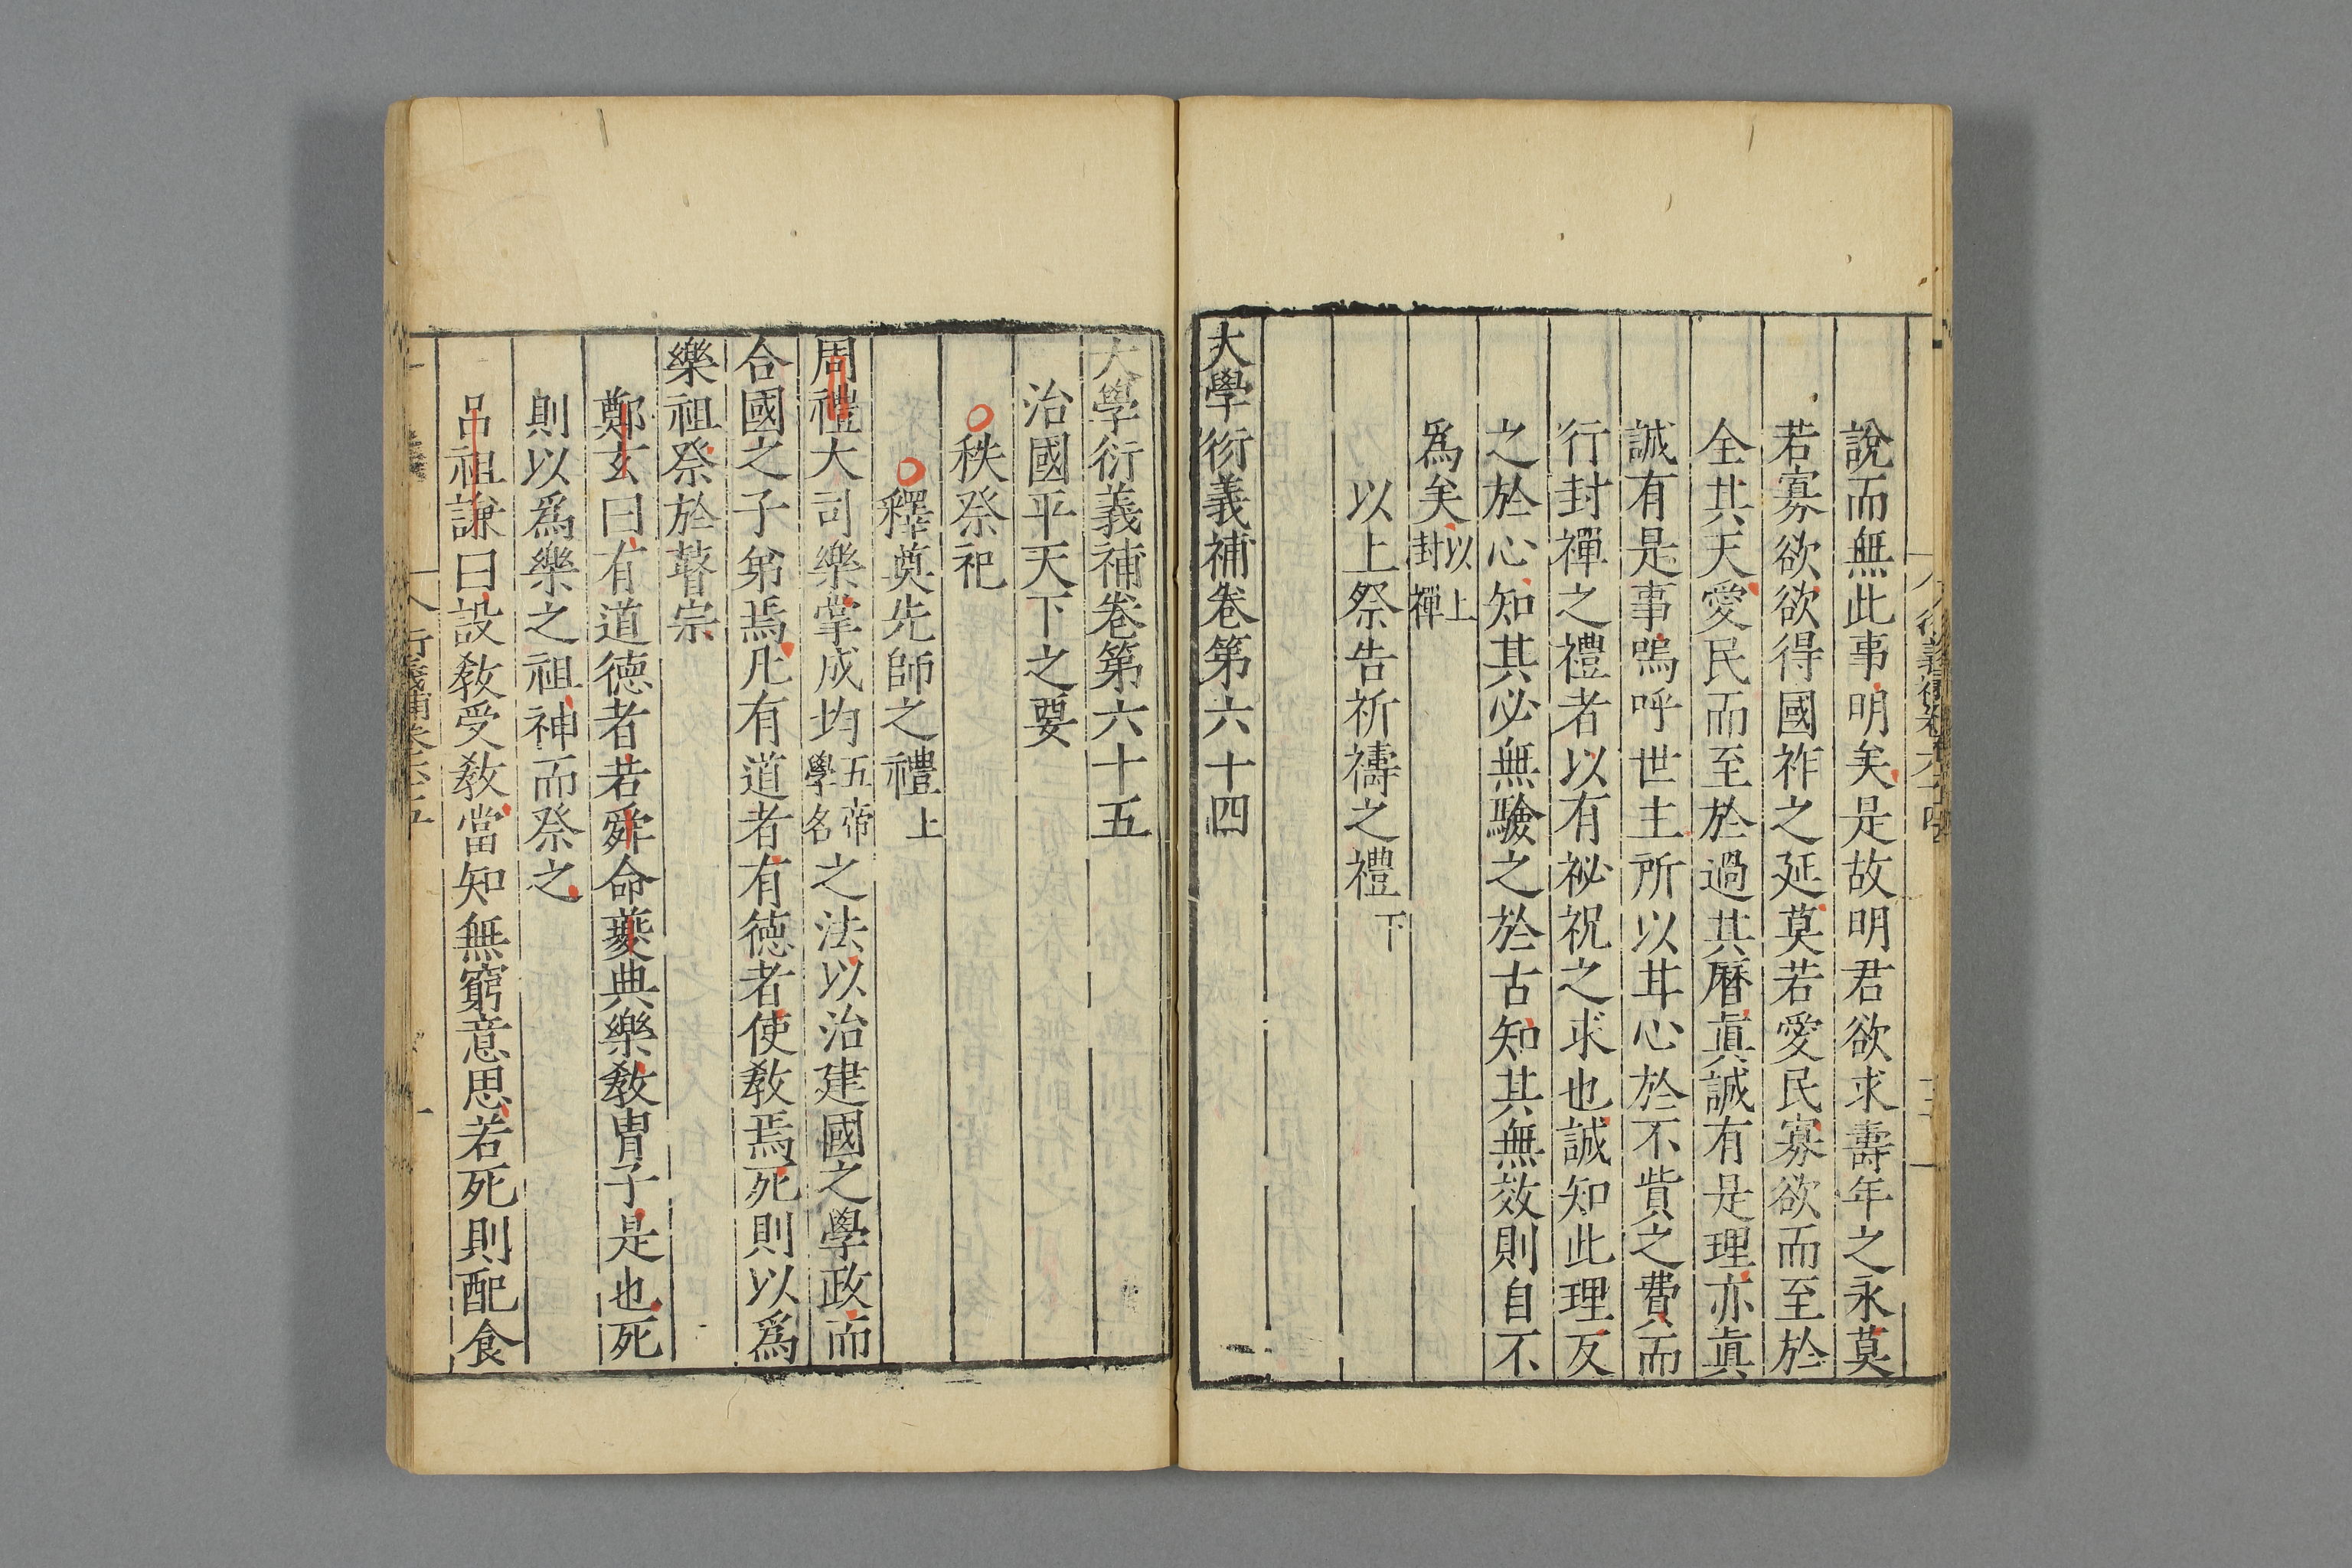 說而無此事明矣是故明君欲求壽年之永莫
若寡欲欲得國祚之延莫若愛民寡欲而至於
全其天愛民而至於過其曆眞誠有是理亦眞
誠有是事嗚呼世主所以甘心於不貲之費而
行封禪之禮者以有祕祝之求也誠知此理反
之於心知其必無驗之於古知其無效則自不
爲矣以上封禪
以上祭告祈禱之禮下
大學衍義補卷第六十四
大學衍義補卷第六十五
治國平天下之要
秩祭祀
釋奠先師之禮上
周禮大司樂掌成均五帝學名之法以治建國之學政而
合國之子弟焉凡有道者有德者使敎焉死則以爲
樂祖祭於瞽宗
鄭玄曰有道德者若舜命夔典樂敎冑子是也死
則以爲樂之祖神而祭之
呂祖謙曰設敎受敎當知無窮意思若死則配食